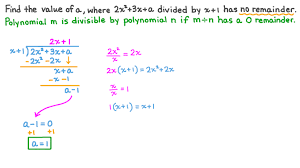 Find the value of a, where 2x²+3x+a divided by x+1 has no remainder.
Polynomial m is divisible by polynomial n if m÷n has a 0 remainder.
2x+1
x+1 2x²+3x+a
-2x²-2x ↓
x+a
-x-1
a-1
a-1=0
+1 +1
a=1
2x²/x = 2x
2x(x+1)=2x²+2x
x/x = 1
1(x+1)=x+1